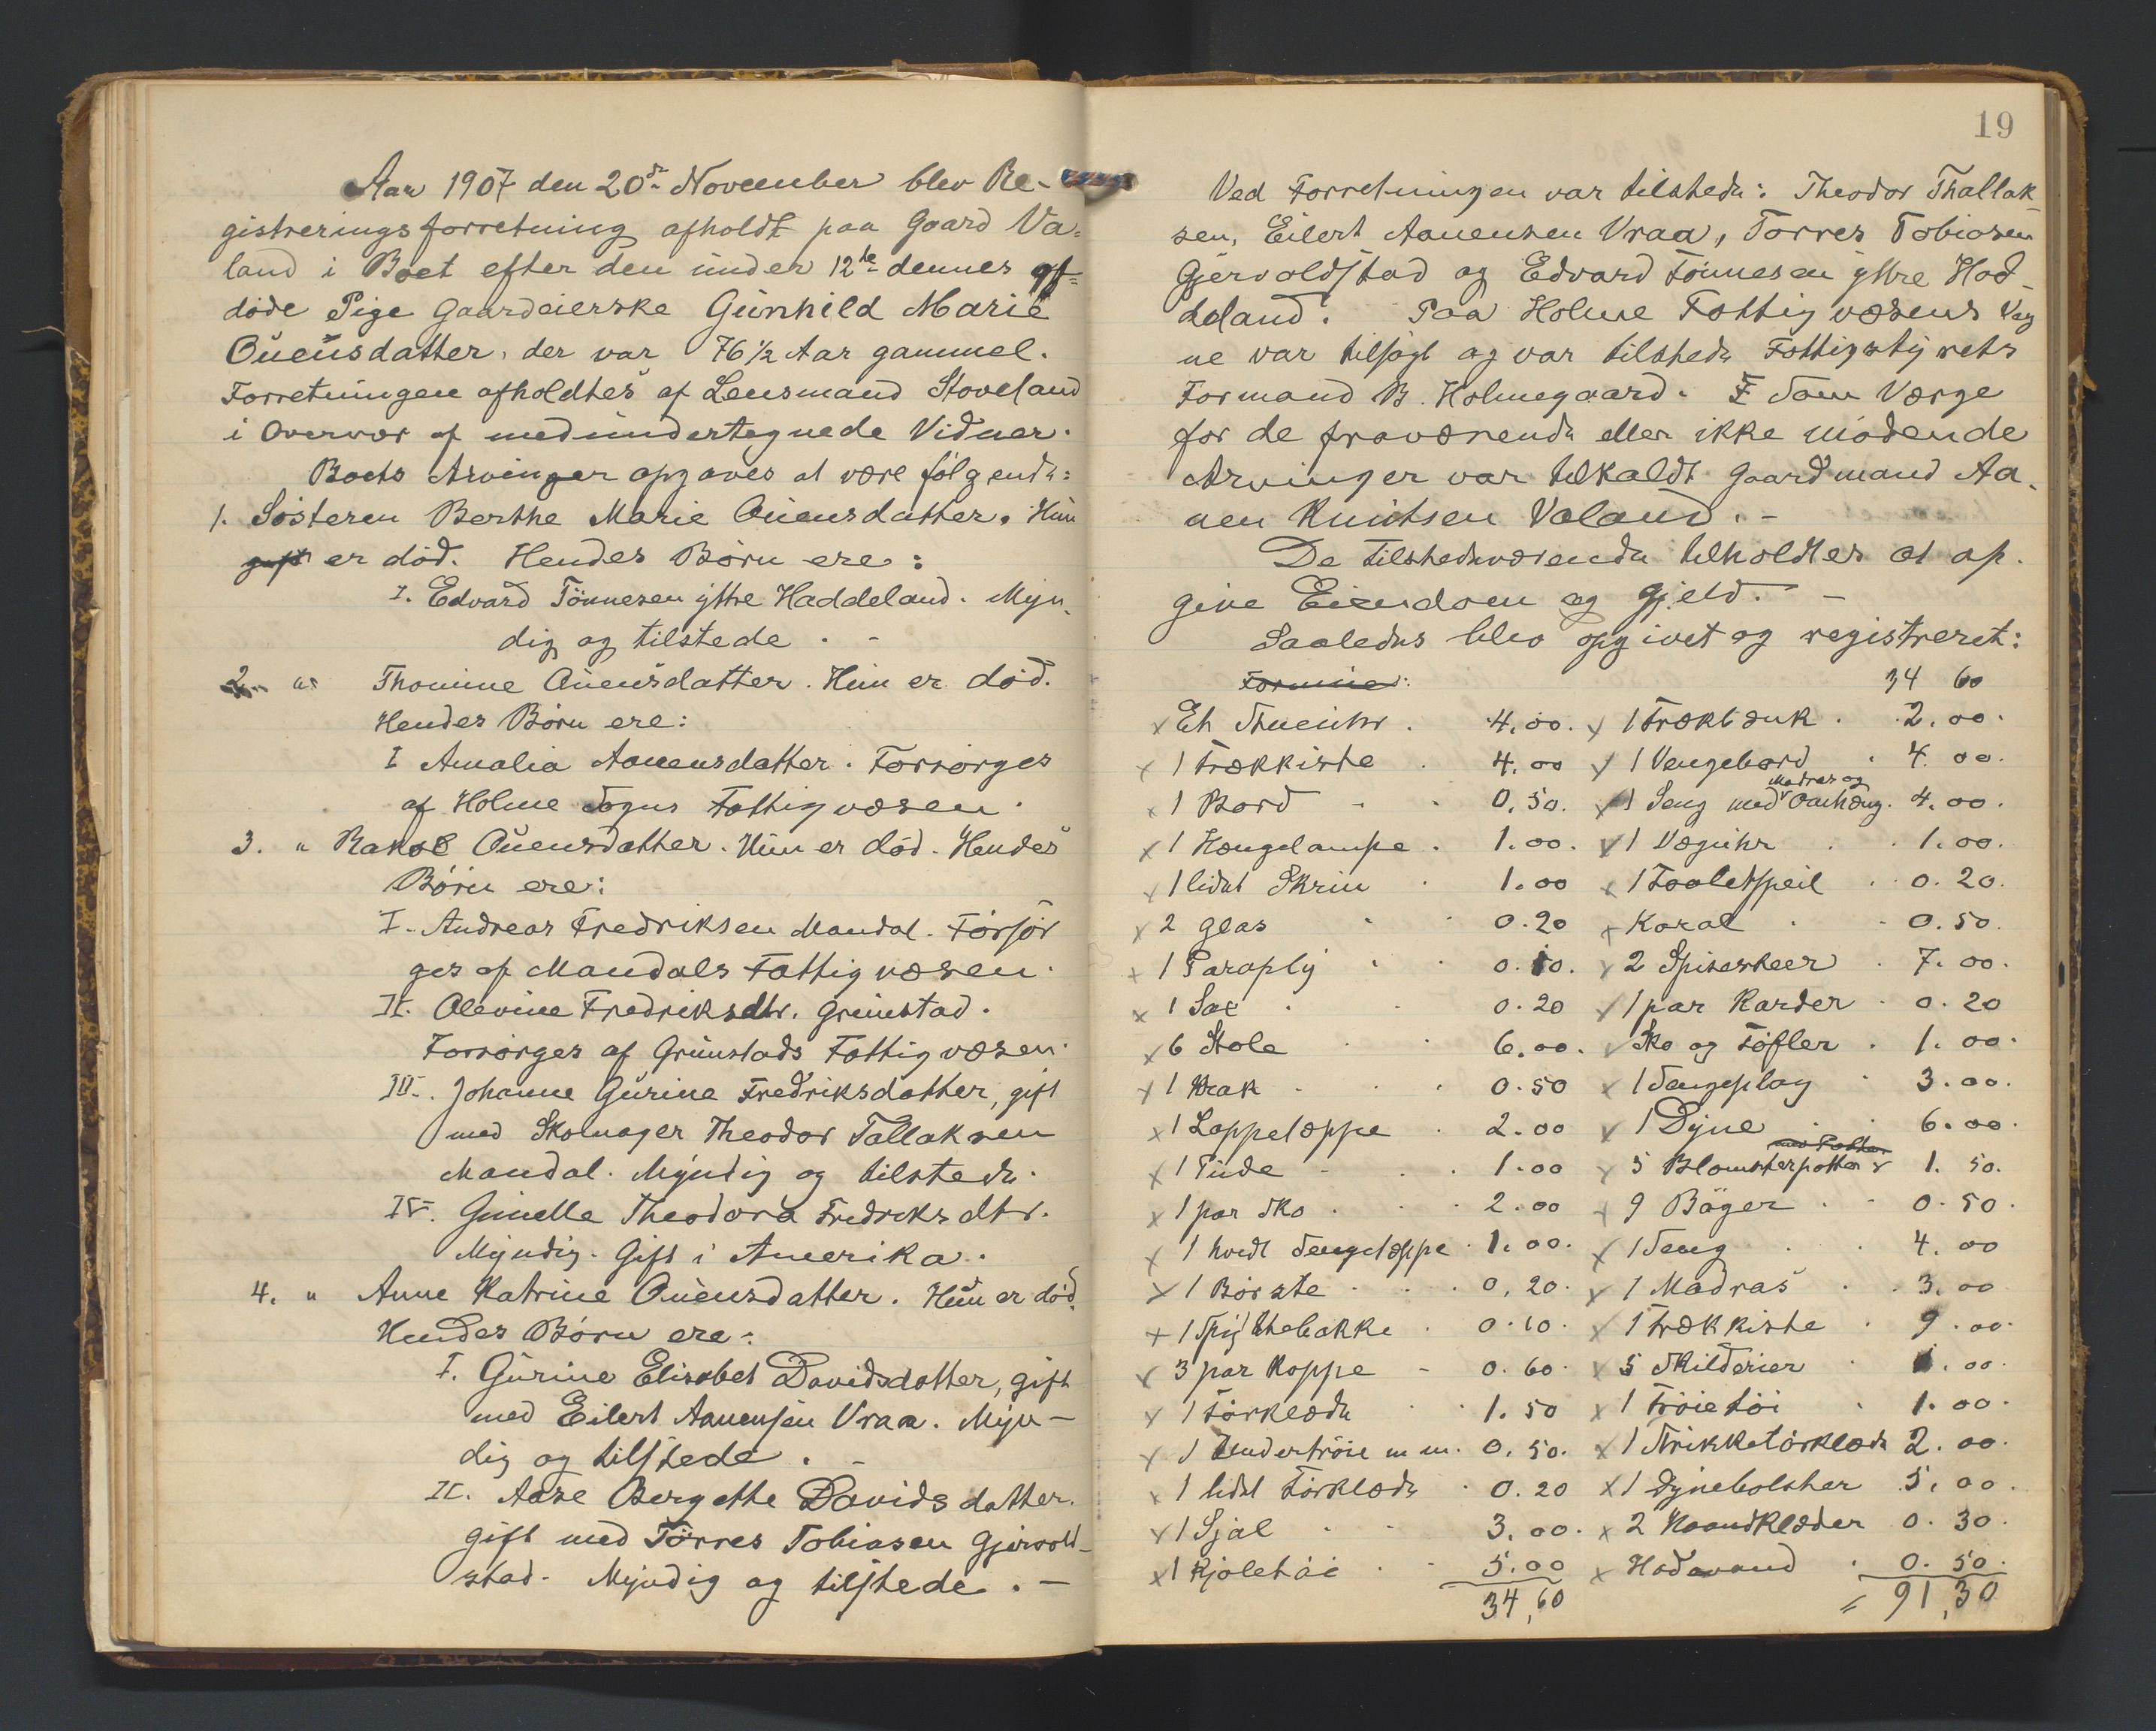 Aar 1907 den 20de November blev Re-
gistreringsforretning afholdt paa Gaard Va-
land i Boet efter den under 12te dennes af-
døde Pige Gaardeierske Gunhild Marie
Ouensdatter, der var 76 1/2 Aar gammel.
Forretningen afholdtes af Lensmand Stoveland
i Overvær af medundertegnede Vidner.
Boets Arvinger opgaves at være følgende:
1. Søsteren Berthe Marie Ouensdatter. Hun
gift er død. Hendes Børn ere:
I. Edvard Tönnesen ytre Haddeland. Myn-
dig og tilstede. -
2. " Thomine Ouensdatter. Hun er død.
Hendes Børn ere:
I Amalia Aanensdatter. Forsørges
af Holme Sogns Fattigvæsen.
3. " Rakel Ouensdatter. Hun er død. Hendes
Børn ere:
I. Andreas Fredriksen Mandal. Forsør
ges af Mandals Fattigvæsen.
II. Olevine Fredriksdtr. Grimstad.
Forsørges af Grimstads Fattigvæsen.
III. Johanne Gurine Fredriksdatter, gift
med Skomager Theodor Tallaksen
Mandal. Myndig og tilstede.
IV. Gunelle Theodora Fredriksdtr.
Myndig. Gift i Amerika.
4. " Anne Katrine Ouensdatter. Hun er død.
Hendes Børn ere:
I. Gurine Elisabet Davidsdatter, gift
med Eilert Aanensen Vraa. Myn-
dig og tilstede. -
II. Aase Bergette Davidsdatter.
gift med Törres Tobiasen Gjervold-
stad. Myndig og tilstede. -
19
Ved Forretningen var tilstede: Theodor Thallak-
sen, Eilert Aanensen Vraa, Tørres Tobiasen
Gjervoldstad og Edvard Tönnesen ytre Had-
deland. Paa Holme Fattigvæsens Veg
ne var tilsagt og var tilstede Fattigstyrets
Formand B. Holmegaard. F Som Værge
for de fraværende eller ikke mødende
Arvinger var tilkaldt Gaardmand Aa-
nen Knutsen Valand. -
De tilstedeværende tilholdtes at op-
give Eiendom og Gjeld. -
Saaledes blev opgivet og registreret:
Formue: 34 60
x Et Stueuhr . 4.00. x 1 Trækbænk . 2.00.
x 1 Trækkiste . 4.00 x 1 Vengebord . 4.00.
x 1 Bord - . 0.50. x 1 Seng med Madras og Omhæng. 4.00.
x 1 Hængelampe . 1.00. x 1 Væguhr . 1.00.
x 1 lidet Skrin . 1.00 x 1 Toaletspeil . 0.20.
x 2 Glas . 0.20 x Karal . 0.50.
x 1 Paraply . 0.10. x 2 Spiseskeer . 7.00.
x 1 Sax . 0.20 x 1 par Karder . 0.20
x 6 Stole . 6.00. x Sko og Tøfler . 1.00.
x 1 Krak . 0.50 x 1 Sengeplag . 3.00.
x 1 Lappetæppe . 2.00 x 1 Dyne . 6.00.
x 1 Pude - . 1.00 x 5 Blomsterpotter 1.50.
x 1 par Sko . 2.00 x 9 Bøger . 0.50.
x 1 hvidt Sengetæppe . 1.00. x 1 Seng . 4.00
x 1 Børste . 0.20. x 1 Madras . 3.00
x 1 Spyttebakke . 0.10. x 1 Trækkiste . 9.00.
x 3 par Koppe - 0.60. x 5 Skilderier . 1.00.
x 1 Førklæde . 1.50 x 1 Trøietøi . 1.00.
x 1 Undertrøie m m. 0.50. x 1 Strikketørklæde 2.00.
x 1 lidet Førklæde . 0.20 x 1 Dynebolster 5.00.
x 1 Sjal . 3.00. x 2 Haandklæder 0.30.
x 1 Kjoletøi . 5.00 x Hodevand . 0.50.
34,60 = 91,30